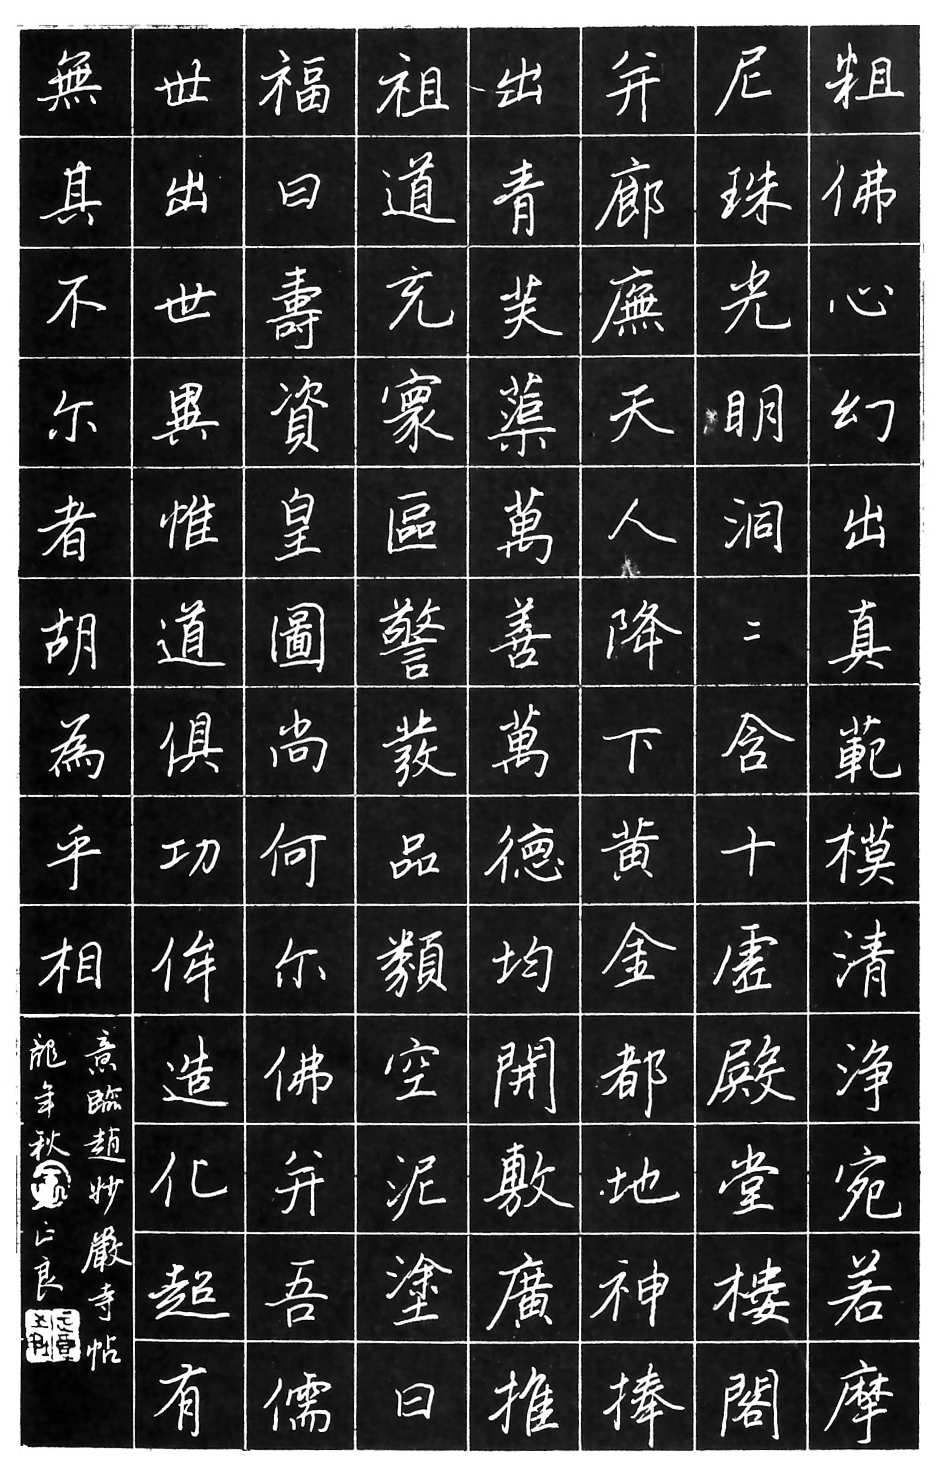 粗佛心幻出真範模清淨宛若摩
尼珠光明洞二含十虛殿堂樓閣
并廊廡天人降下黄金都地神捧
出青芙蕖萬善萬德均開敷廣推
祖道充寰區警發品類空泥塗曰
福曰壽資皇圖尚何尔佛并吾儒
世出世異惟道俱功侔造化超有
無其不尔者胡為乎相
意臨趙妙嚴寺帖
龍年秋 正良